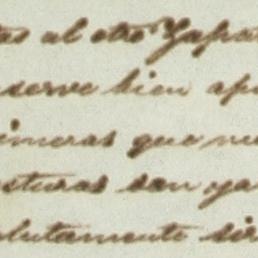 tas al otro Zapat
serve bien ap
imeras que nu
sturas son ya
olutamente sir